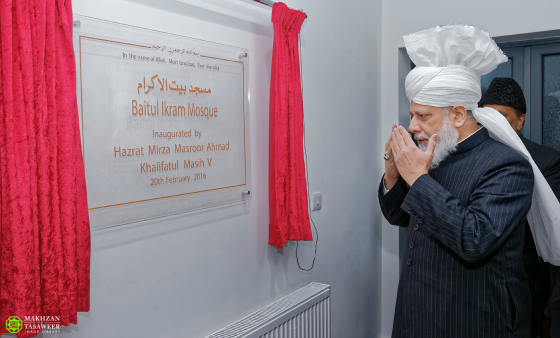 بسم الله الرحمن الرحيم
In the name of Allah, Most Gracious, Ever Merciful
مسجد بيت الاكرام
Baitul Ikram Mosque
Inaugurated by
Hazrat Mirza Masroor Ahmad
Khalifatul Masih V
20th February 2016
MAKHZAN
TASAWEER
IMAGE LIBRARY